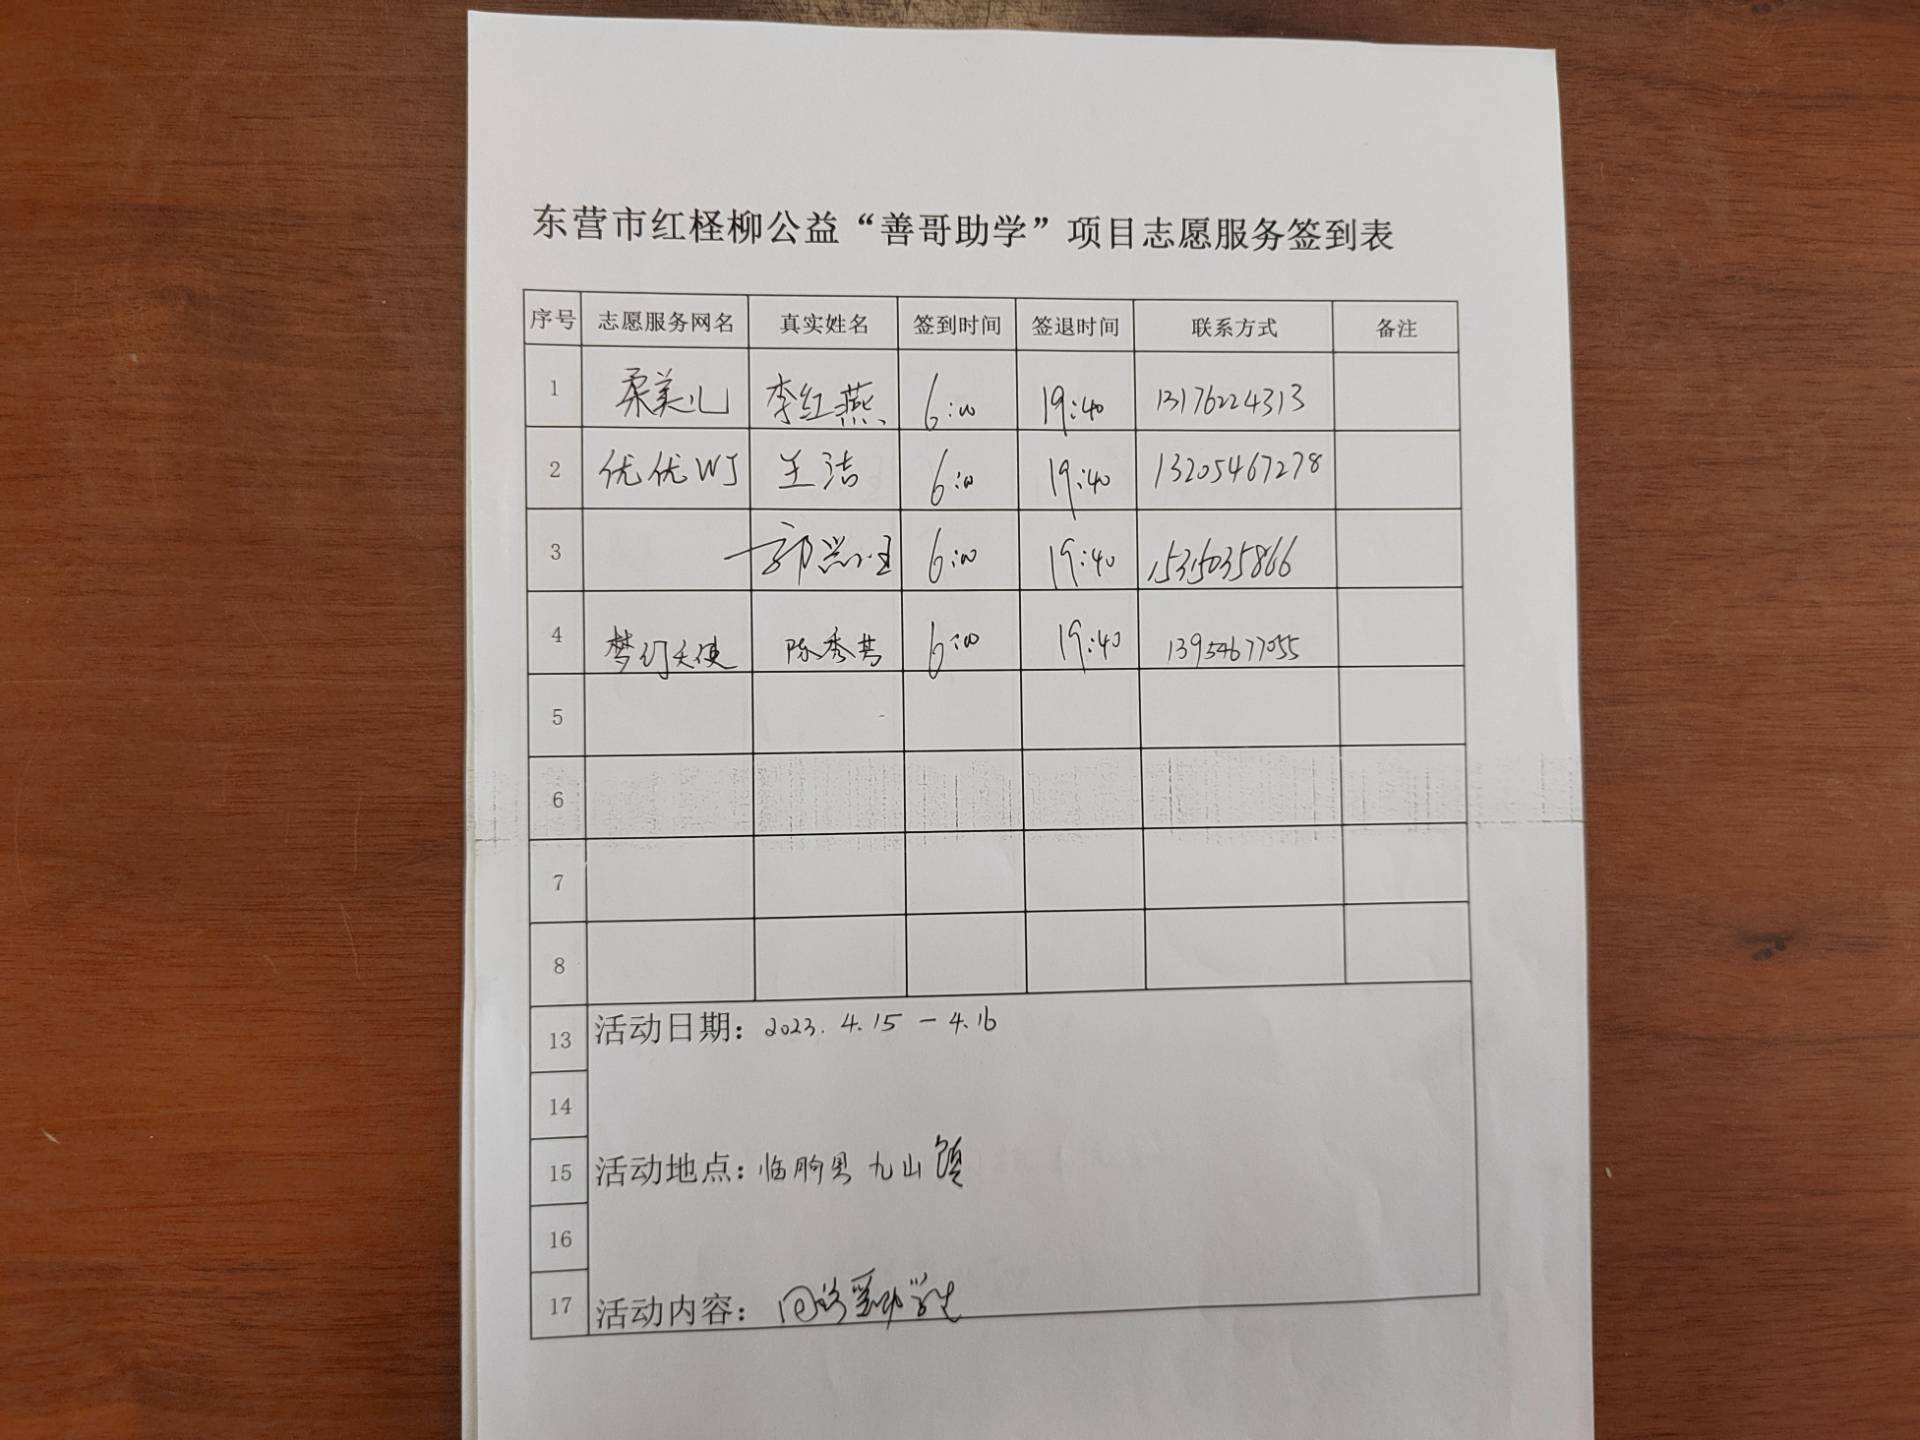 东营市红柽柳公益“善哥助学”项目志愿服务签到表
序号 志愿服务网名 真实姓名 签到时间 签退时间 联系方式 备注
1 柔美儿 李红燕 6:00 19:40 13176224313
2 优优WJ 王洁 6:00 19:40 13205467278
3 郭 6:00 19:40
4 梦幻天使 陈秀 6:00 19:40 13954677055
5
6
7
8
13 活动日期: 2023. 4. 15 - 4. 16
14
15 活动地点: 临朐县九山镇
16
17 活动内容: 回访受助学生